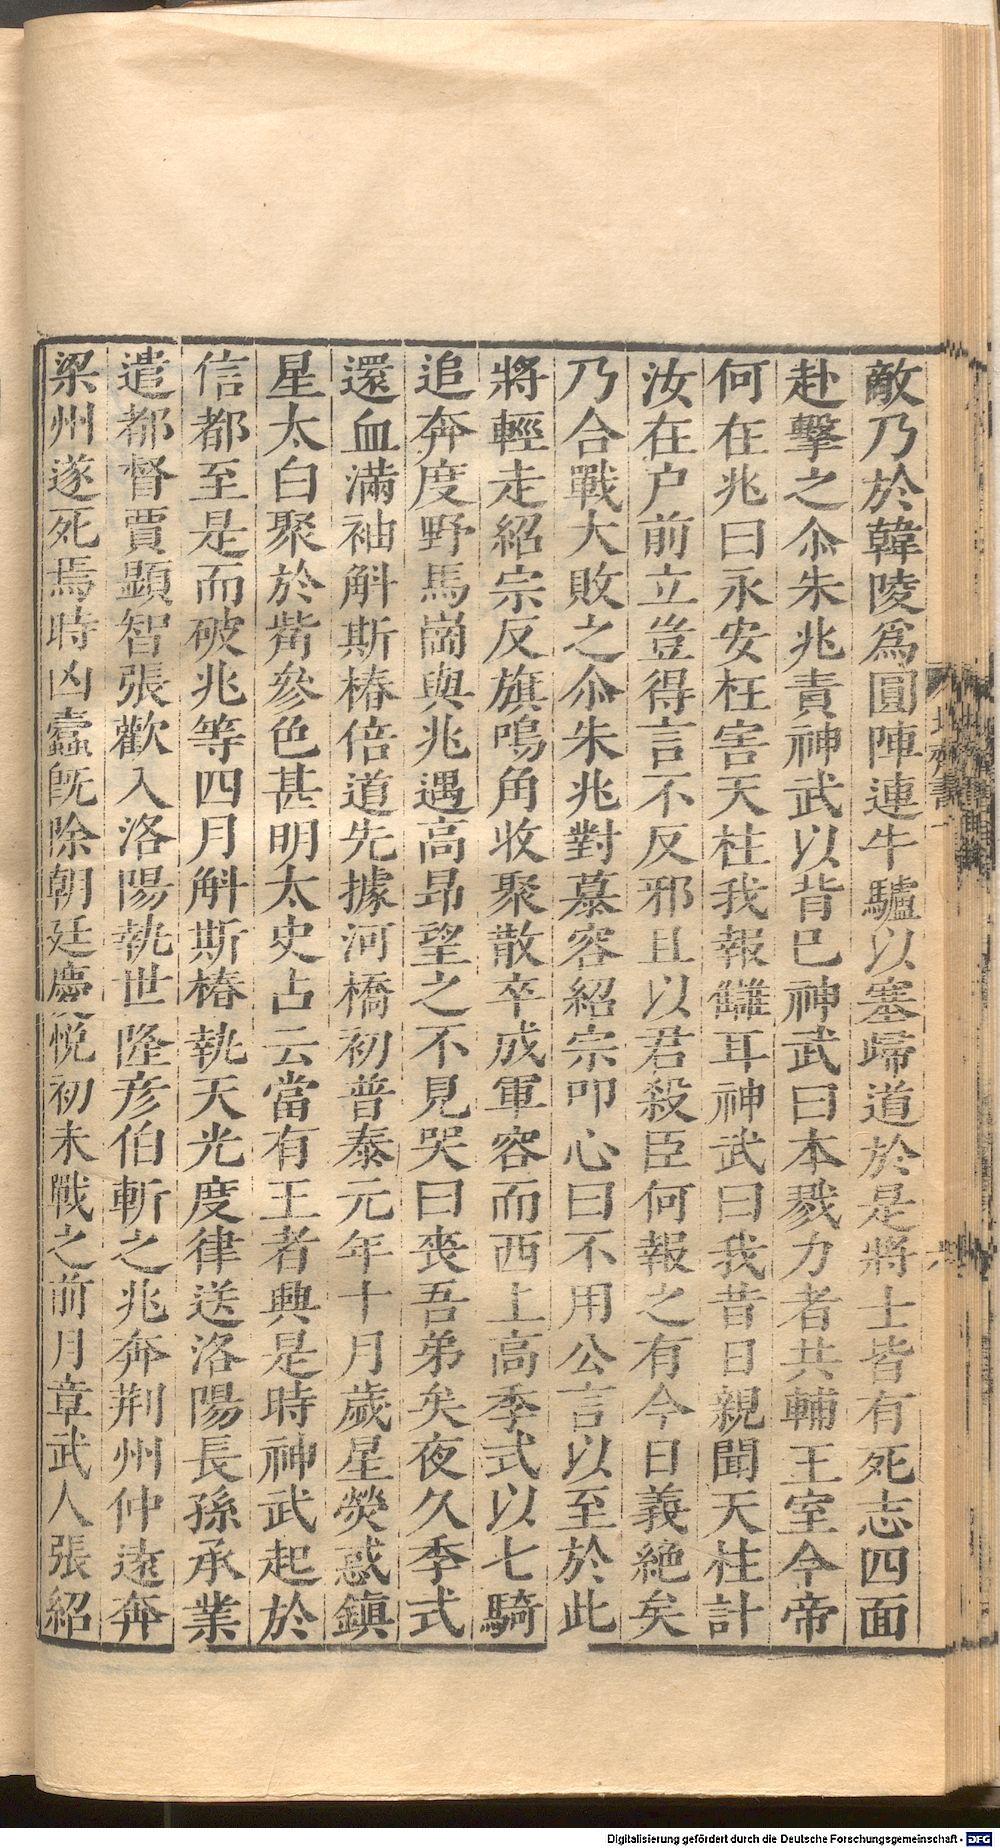 敵乃於韓陵爲圓陣連牛驢以塞歸道於是將士皆有死志四面
赴擊之尒朱兆責神武以背巳神武曰本戮力者共輔王室今帝
何在兆曰永安枉害天柱我報讎耳神武曰我昔日親聞天柱計
汝在户前立豈得言不反邪且以君殺臣何報之有今日義絕矣
乃合戰大敗之尒朱兆對慕容紹宗叩心曰不用公言以至於此
將輕走紹宗反旗鳴角收聚散卒成軍容而西上高季式以七騎
追奔度野馬崗與兆遇高昂望之不見哭曰喪吾弟矣夜久季式
還血滿袖斛斯椿倍道先據河橋初普泰元年十月歲星熒惑鎮
星太白聚於觜參色甚明太史占云當有王者興是時神武起於
信都至是而破兆等四月斛斯椿執天光度律送洛陽長孫承業
遣都督賈顯智張歡入洛陽執世隆彥伯斬之兆奔荆州仲遠奔
梁州遂死焉時凶蠹旣除朝廷慶悅初未戰之前月章武人張紹
Digitalisierung gefördert durch die Deutsche Forschungsgemeinschaft - DFG